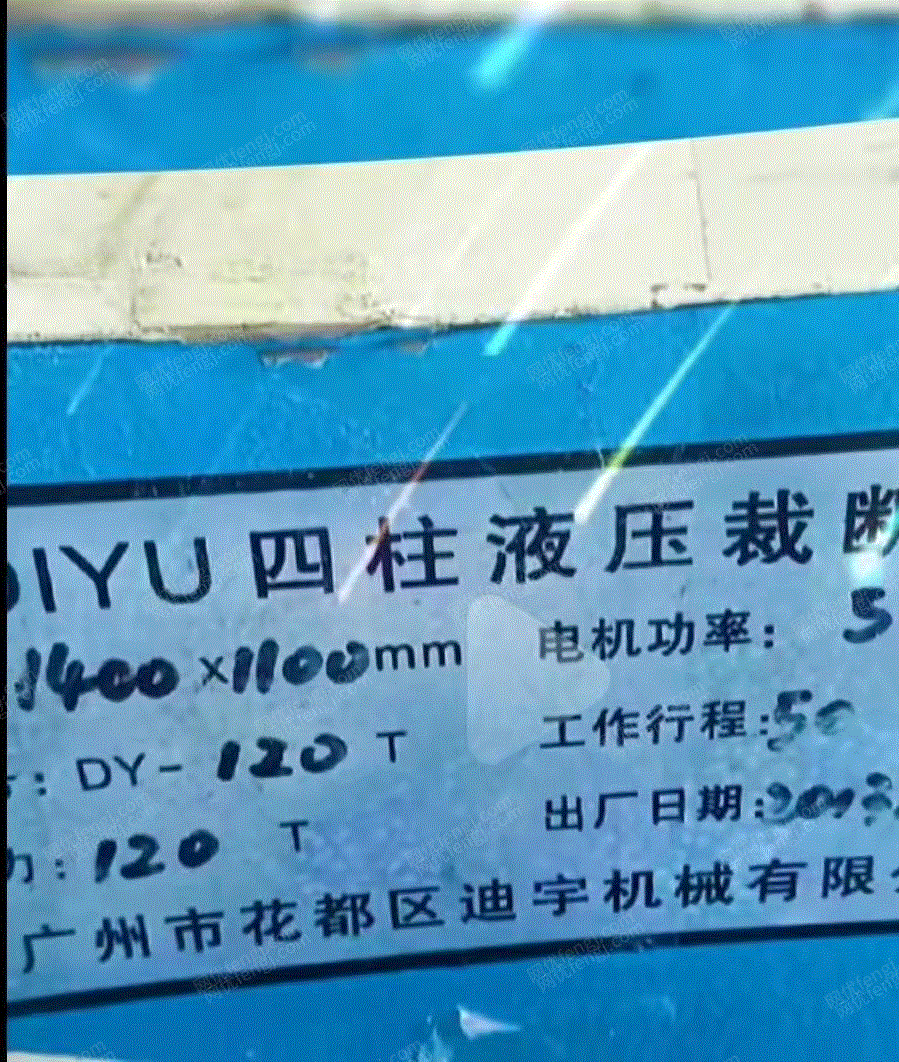 DIYU四柱液压裁断
1400×1100mm 电机功率：5
：DY-120 T 工作行程:50
力：120 T 出厂日期:2013
广州市花都区迪宇机械有限